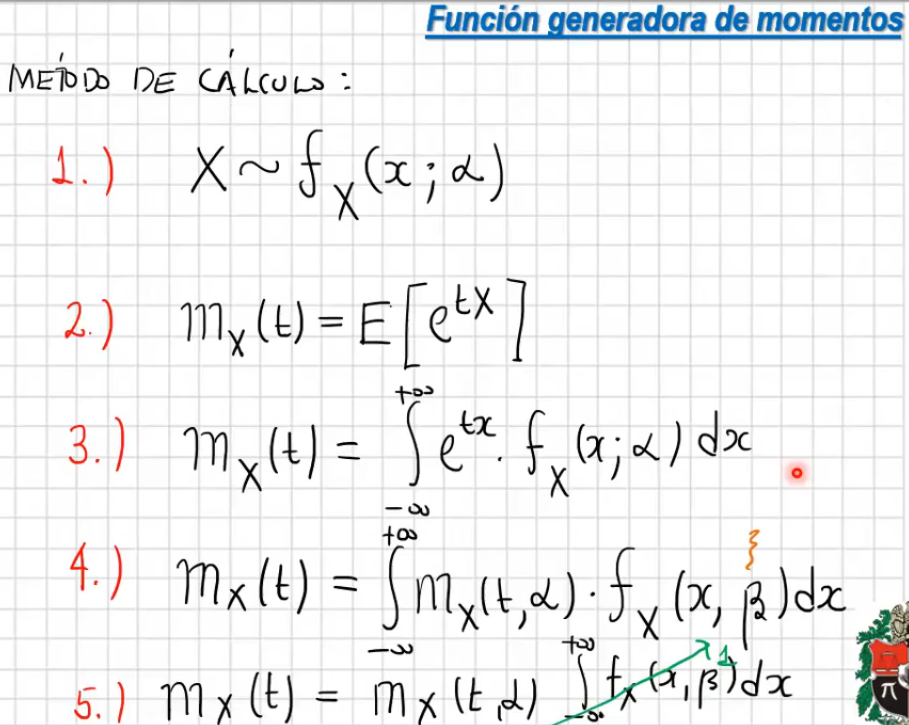 Función generadora de momentos
MÉTODO DE CÁLCULO:
1.) X ~ f_X(x; α)
2.) m_X(t) = E[e^{tX}]
3.) m_X(t) = ∫_{-∞}^{+∞} e^{tx} · f_X(x; α) dx
4.) m_X(t) = ∫_{-∞}^{+∞} m_X(t, α) · f_X(x, β) dx
5.) m_X(t) = m_X(t, α) ∫_{-∞}^{+∞} f_X(x, β) dx 1
π